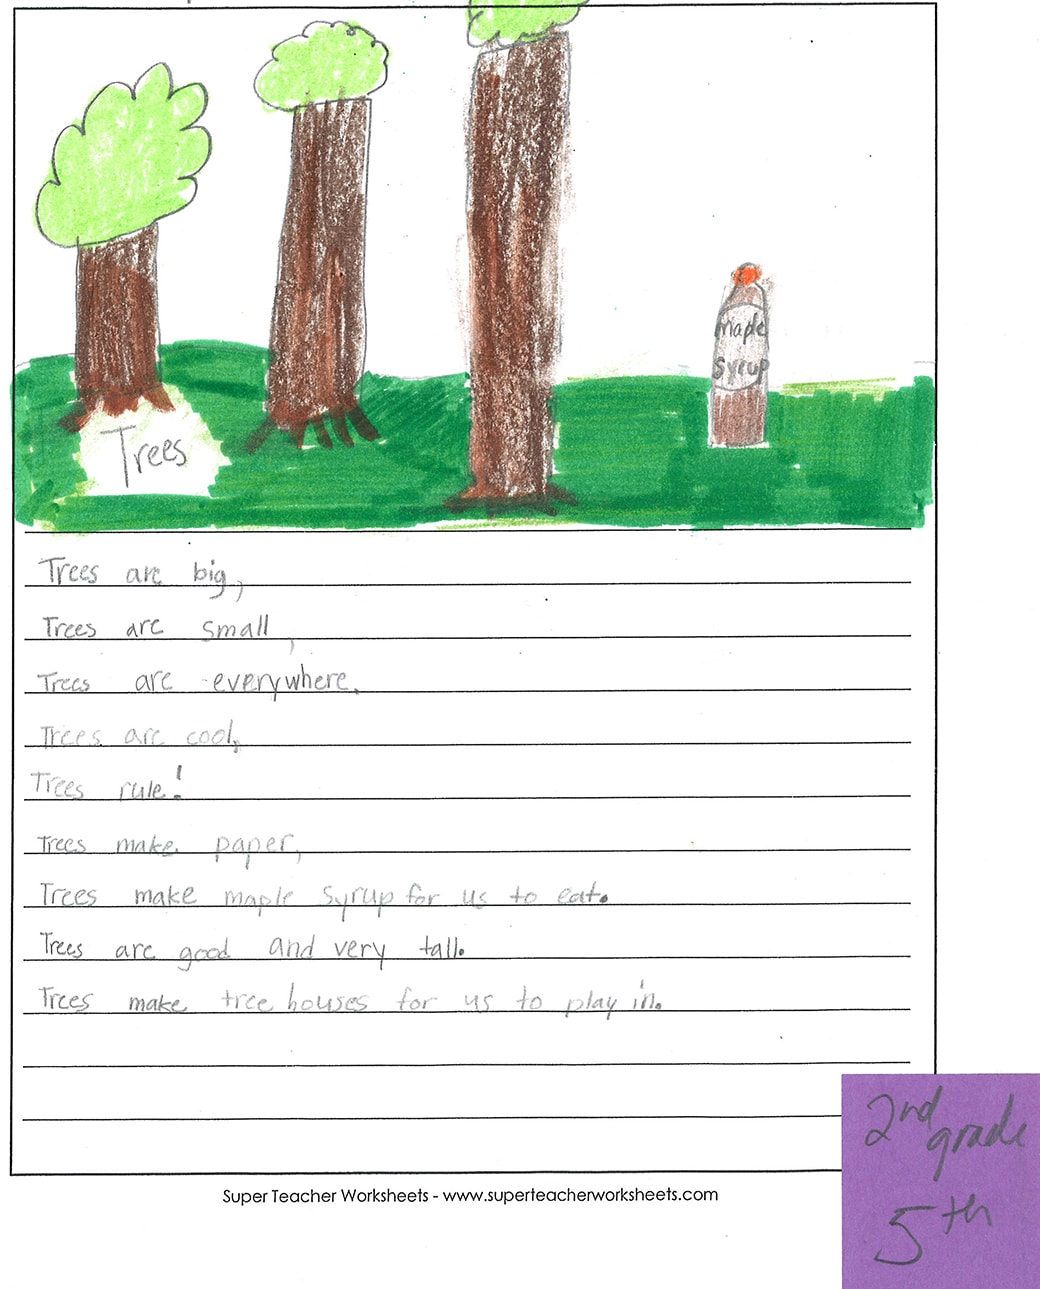 Maple
Syrup
Trees
Trees are big,
Trees are small,
Trees are everywhere.
Trees are cool,
Trees rule!
Trees make paper,
Trees make maple syrup for us to eat.
Trees are good and very tall.
Trees make tree houses for us to play in.
Super Teacher Worksheets - www.superteacherworksheets.com
2nd
grade
5th